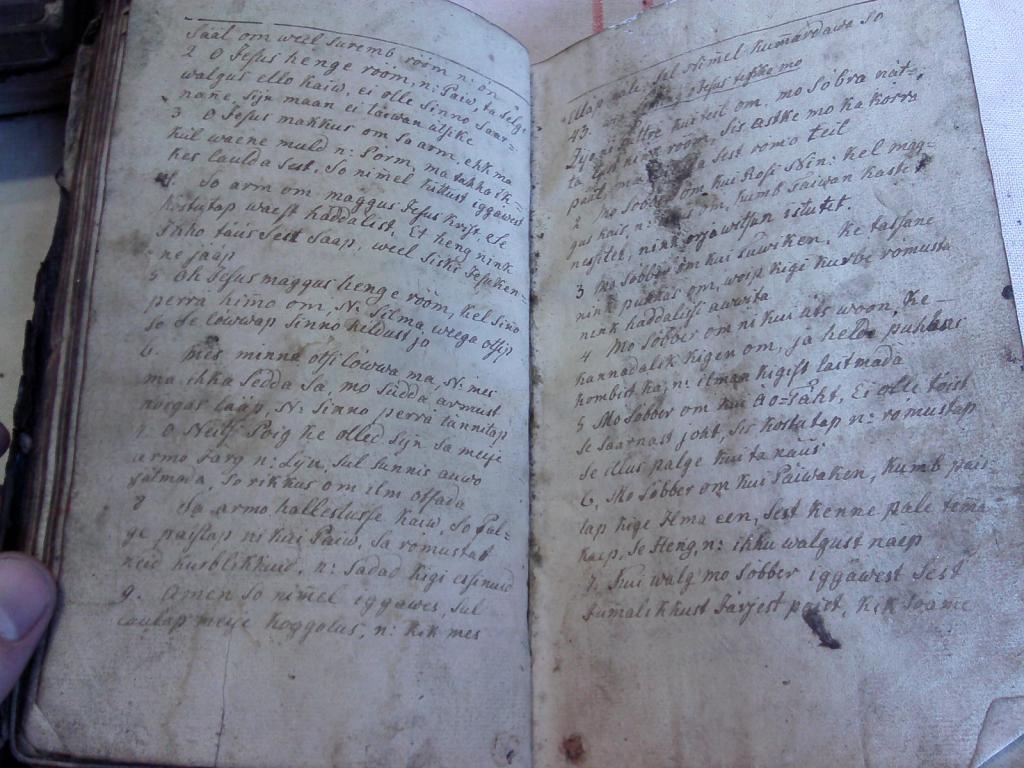 Saal om weel suremb room n: on
2 O Jesus henge room, n: Paiw, ta selge
walgus ello kaiw, ei olle Sinno Saar-
nane, Sijn maan ei taewan ütsike
3 O Jesus makkus om Sa arm, ehk ma
kül waene muld n: Porm, ma tahha ik-
kes laulda Sest, So nimel kittust iggawest
4. So arm om maggus Jesus Krist, Se
kostutap waest haddalist, Et heng nink
Ihho taus Sest Saap, weel Siski Jesu ken-
ne jääp
5 Oh Jesus maggus henge room, kel Sino
perra himo om, N: Silma weega otsip
So Se löwwap Sinno heldust jo
6. mes minna otsi löwwa ma, N: mes
ma ihka Sedda Sa, mo Südda armust
nörgas lääp, N: Sinno perra tännitap
7. O Neitsi Poig ke olled Sijn Sa meije
armo Sarg n: Lijn, Sul Sunnis auwo
jatmada, So rikkus om ilm otsada
8 Sa armo hallestusse Kaiw, So Pal-
ge paistap ni kui Paiw, Sa romustat
neid kurblikkuid, n: Sadad kigi esinuid
9. Amen So nimel iggawes, Sul
laulap meije koggolus, n: kik mes
Maa pääl Sul Nimel kumardawa So
43. O Jesus rikko mo
kui teil om, mo Sobra nat-
ta room, Sis astke mo ka korra
paäl ma Sest romo teil
2 mo Sobber om kui Rosi Sain: kel mag-
gus hais, n: om, kumb Taiwan kaste
nesitet, nink orjawitsan istutet.
3 mo Sobber om kui Suwiken, ke taljane
nink puhhas om, woip kigi kurbe romusta
nink haddalissi auwita
4 Mo Sobber om ni kui üts woon, ke-
kannadalik kigen om, ja helde puhhus
kombist ka, n: ilman kigist laitmada
5 Mo Sobber om kui ao-Täht, Ei olle töist
Se Saarnast joht, Sis kostutap n: romustap
Se illus palge kui ta näüs
6, Mo Sobber om kui Päiwaken, kumb pais-
tap kige Ilma een, Sest kenne pale temä
käep, Se Heng, n: ihhu walgust naep
7. Kui walg mo Sobber iggawest Sest
Jummalikkust Sarjest paist, kik Soame